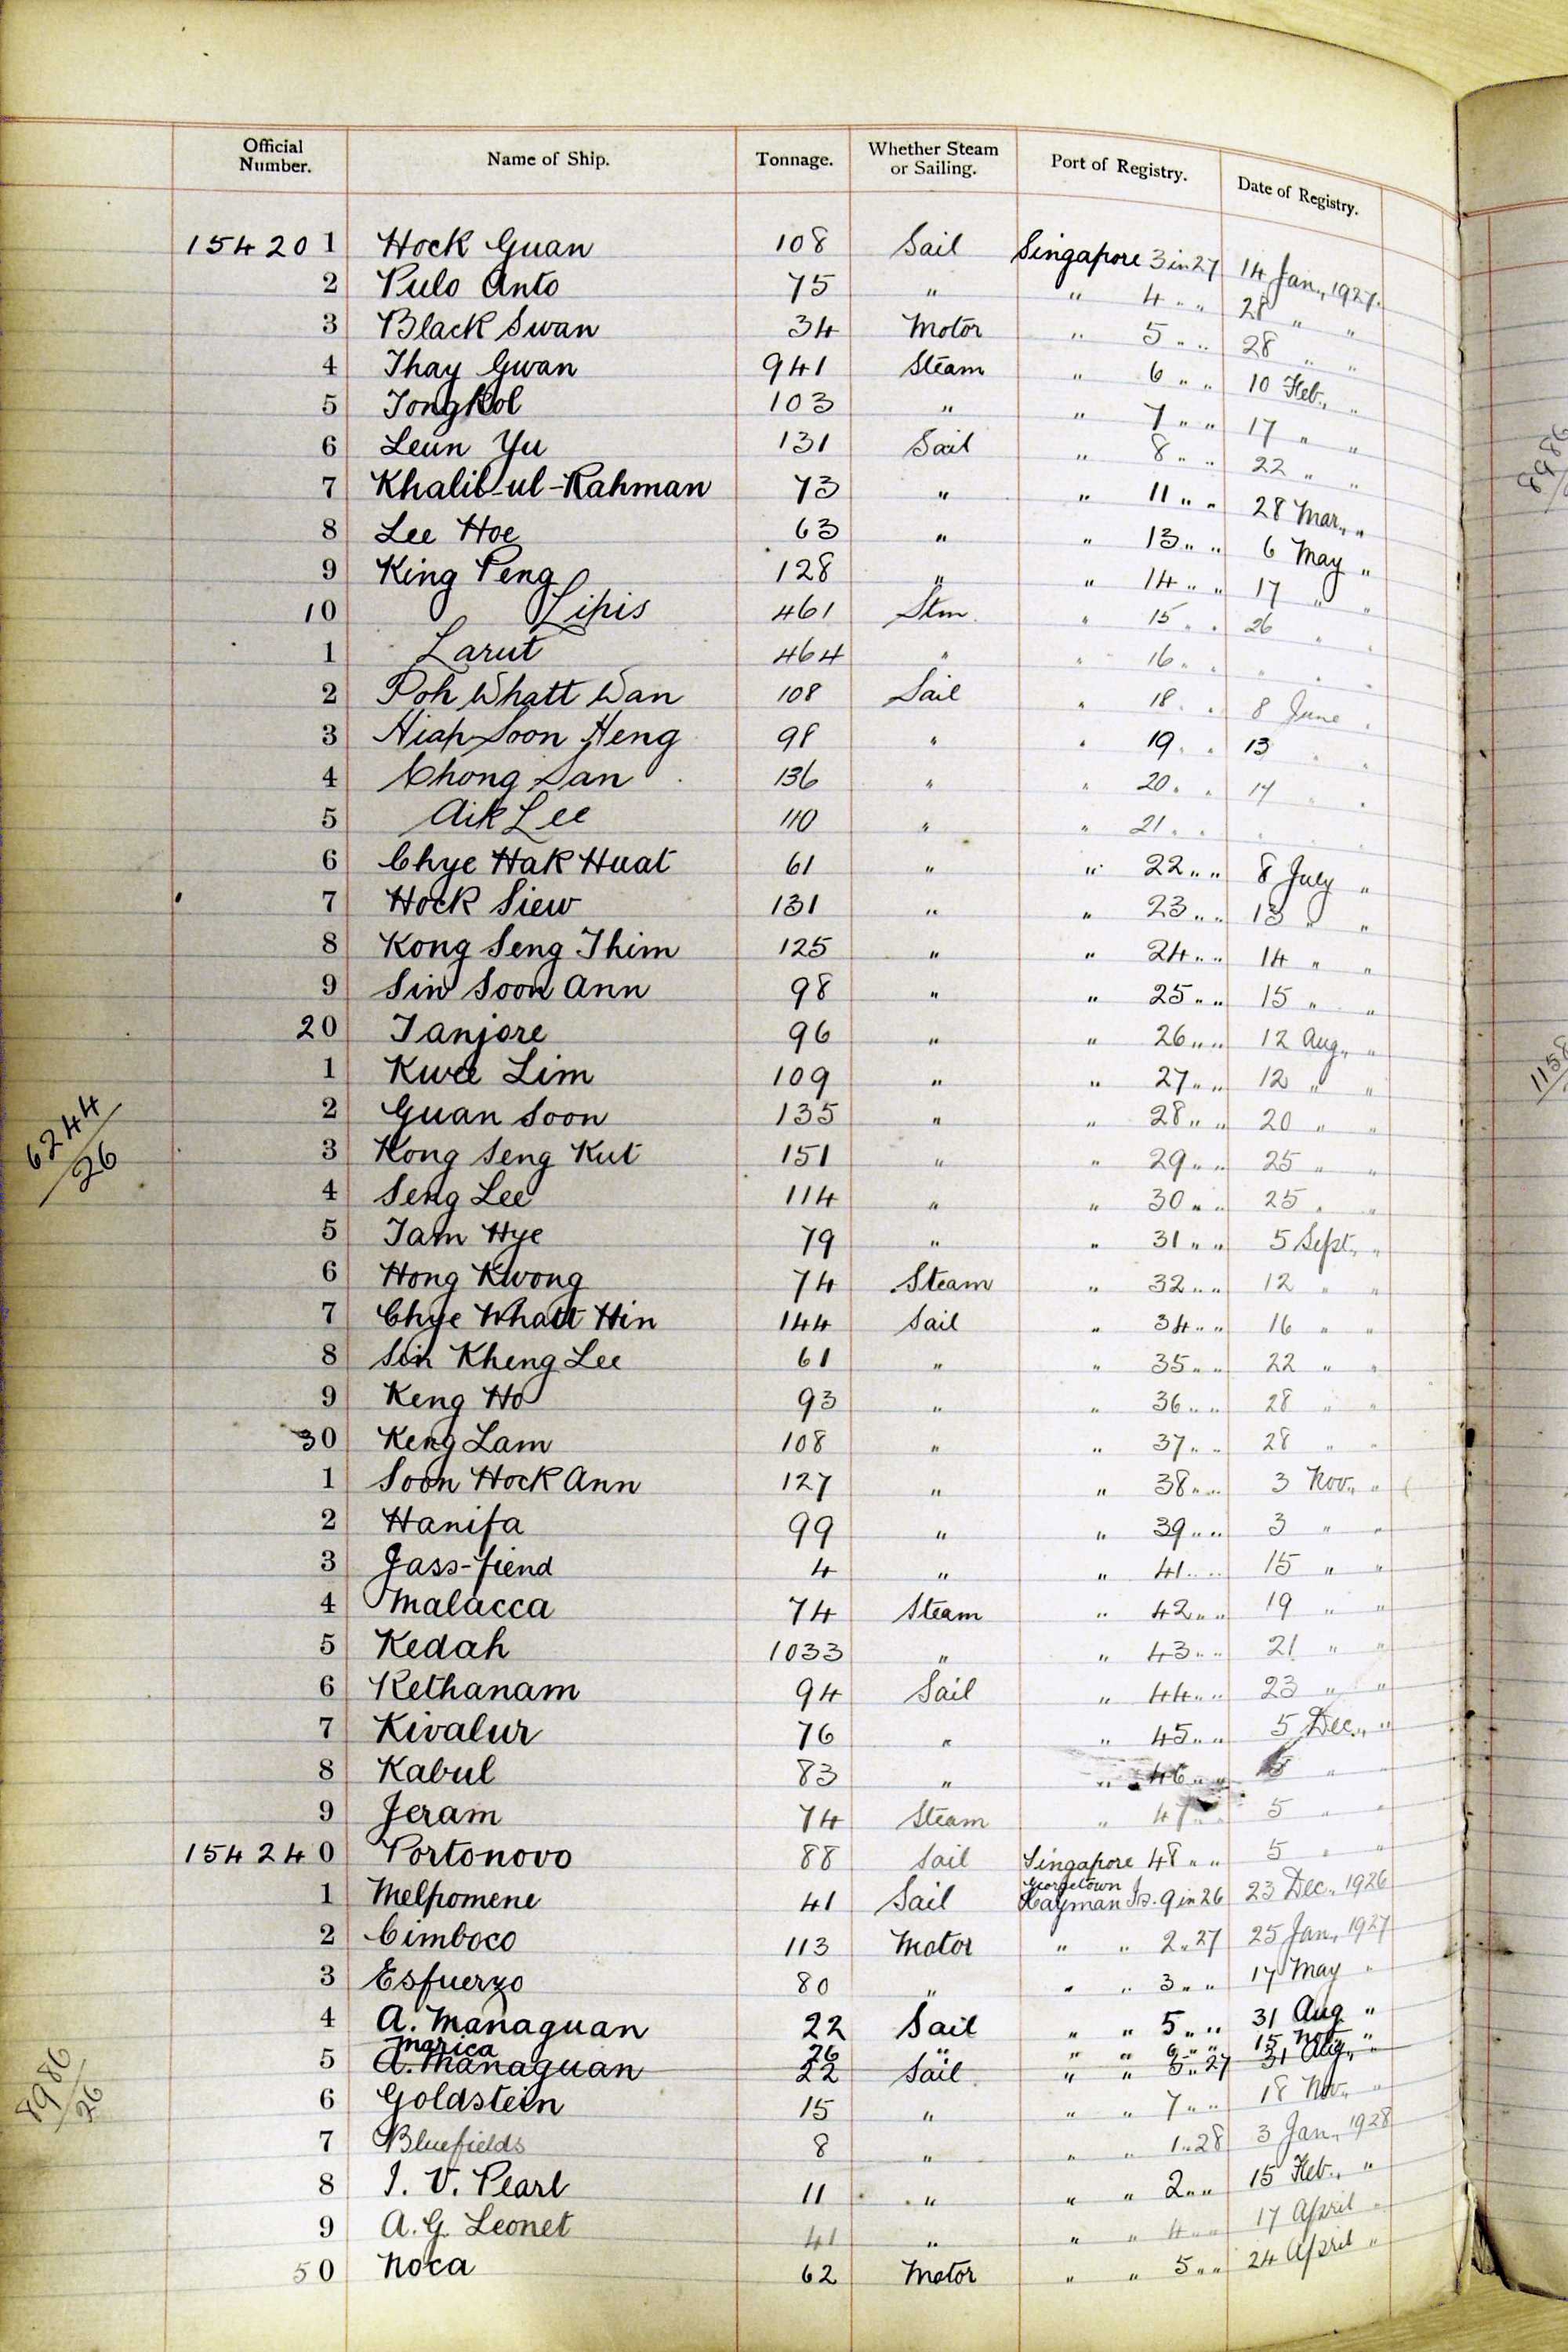 Official Number. Name of Ship. Tonnage. Whether Steam or Sailing. Port of Registry. Date of Registry.
154201 Hock Guan 108 Sail Singapore 3 in 27 14 Jan., 1927.
2 Pulo Anto 75 " " 4 " " 28 " "
3 Black Swan 34 Motor " 5 " " 28 " "
4 Thay Gwan 941 Steam " 6 " " 10 Feb., "
5 Tongkol 103 " " 7 " " 17 " "
6 Leun Yu 131 Sail " 8 " " 22 " "
7 Khalil-ul-Rahman 73 " " 11 " " 28 Mar., "
8 Lee Hoe 63 " " 13 " " 6 May "
9 King Peng 128 " " 14 " " 17 " "
10 Lipis 461 Stm. " 15 " " 26 " "
1 Larut 464 " " 16 " " " " "
2 Poh Whatt Wan 108 Sail " 18 " " 8 June "
3 Hiap Soon Heng 98 " " 19 " " 13 " "
4 Chong San 136 " " 20 " " 14 " "
5 Aik Lee 110 " " 21 " " " " "
6 Chye Hak Huat 61 " " 22 " " 8 July "
7 Hock Siew 131 " " 23 " " 13 " "
8 Kong Seng Thim 125 " " 24 " " 14 " "
9 Sin Soon Ann 98 " " 25 " " 15 " "
20 Tanjore 96 " " 26 " " 12 Aug., "
1 Kwee Lim 109 " " 27 " " 12 " "
2 Guan Soon 135 " " 28 " " 20 " "
6244/26
3 Kong Seng Kut 151 " " 29 " " 25 " "
4 Seng Lee 114 " " 30 " " 25 " "
5 Tam Hye 79 " " 31 " " 5 Sept., "
6 Hong Kwong 74 Steam " 32 " " 12 " "
7 Chye Whatt Hin 144 Sail " 34 " " 16 " "
8 Sin Kheng Lee 61 " " 35 " " 22 " "
9 Keng Ho 93 " " 36 " " 28 " "
30 Keng Lam 108 " " 37 " " 28 " "
1 Soon Hock Ann 127 " " 38 " " 3 Nov., "
2 Hanifa 99 " " 39 " " 3 " "
3 Jass-fiend 4 " " 41 " " 15 " "
4 Malacca 74 Steam " 42 " " 19 " "
5 Kedah 1033 " " 43 " " 21 " "
6 Rethanam 94 Sail " 44 " " 23 " "
7 Kivalur 76 " " 45 " " 5 Dec., "
8 Kabul 83 " " 46 " " 5 " "
9 Jeram 74 Steam " 47 " " 5 " "
154240 Portonovo 88 Sail Singapore 48 " " 5 " "
1 Melpomene 41 Sail Georgetown Cayman Is. 9 in 26 23 Dec., 1926
2 Cimboco 113 Motor " " 2 " 27 25 Jan., 1927
3 Esfuerzo 80 " " " 3 " " 17 May "
4 A. Managuan 22 Sail " " 5 " " 31 Aug. "
Marica 26 " " " 6 " " 15 Nov. "
5 A. Managuan 22 Sail " " 5 " 27 31 Aug., "
8986/26
6 Goldstein 15 " " " 7 " " 18 Nov. "
7 Bluefields 8 " " " 1 " 28 3 Jan., 1928
8 I. V. Pearl 11 " " " 2 " " 15 Feb., "
9 A. G. Leonet 41 " " " 4 " " 17 April "
50 Noca 62 Motor " " 5 " " 24 April "